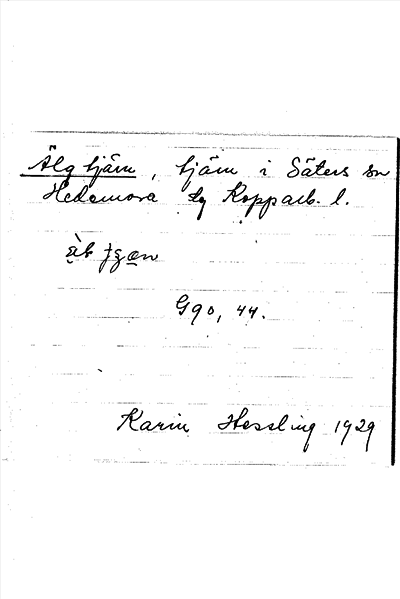 Älgtjärn, tjärn i Säters sn
Hedemora tg Kopparb. l.
G90, 44.
Karin Hessling 1929